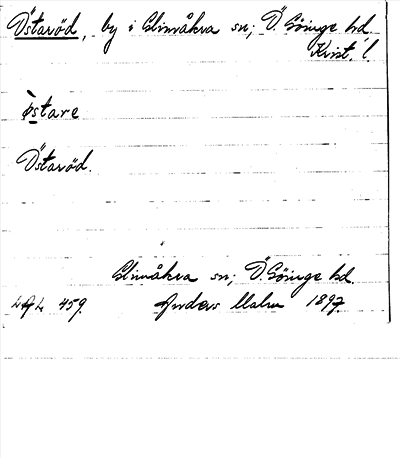 Östaröd, by i Glimåkra sn; Ö. Göinge hd.
Krist. l.
östare
Östaröd.
Glimåkra sn; Ö. Göinge hd.
459. Anders Malm 1897.